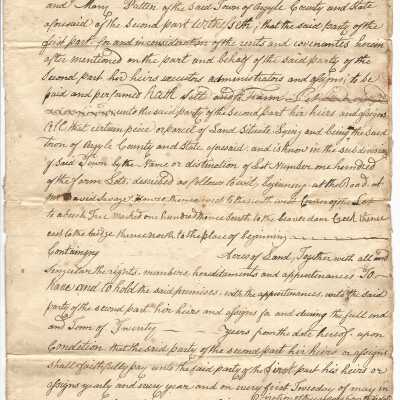 and Mary Patten of the said Town of Argyle County and State
aforesaid of the second part Witnesseth, that the said party of the
first part, for and in consideration of the rents and covenants herein
after mentioned on the part and behalf of the said party of the
Second part her heirs executors administrators and assigns, to be
paid and performed Hath Sett and to Farm
unto the said party of the second part her heirs and assigns
All that certain peice or parcel of Land Situate Lying and being the said
town of Argyle County and State aforesaid, and is know in the subdivision
of Said Town by the Name or distinction of Lot Number one hundred
of the farm Lots, described as follows to wit, Begining at the Road, at
David Savage House thence west to the north west Corner of a Lot
to a beach Tree marked one hundred thence south to the beaver dam Creek thence
east to the bridge thence north to the place of beginning
Containing Acres of Land, Together with all and
Singular the rights, members hereditements and appurtenances To
have and to hold the said premises, with the appurtenances, unto the said
party of the second part her heirs and assigns for and during the full end
and Term of Twenty years from the date hereof, upon
Condition that the said party of the second part her heirs or assigns
shall faithfully pay unto the said party of the first part his heirs or
assigns yearly and every year and on every first Tuesday of may in